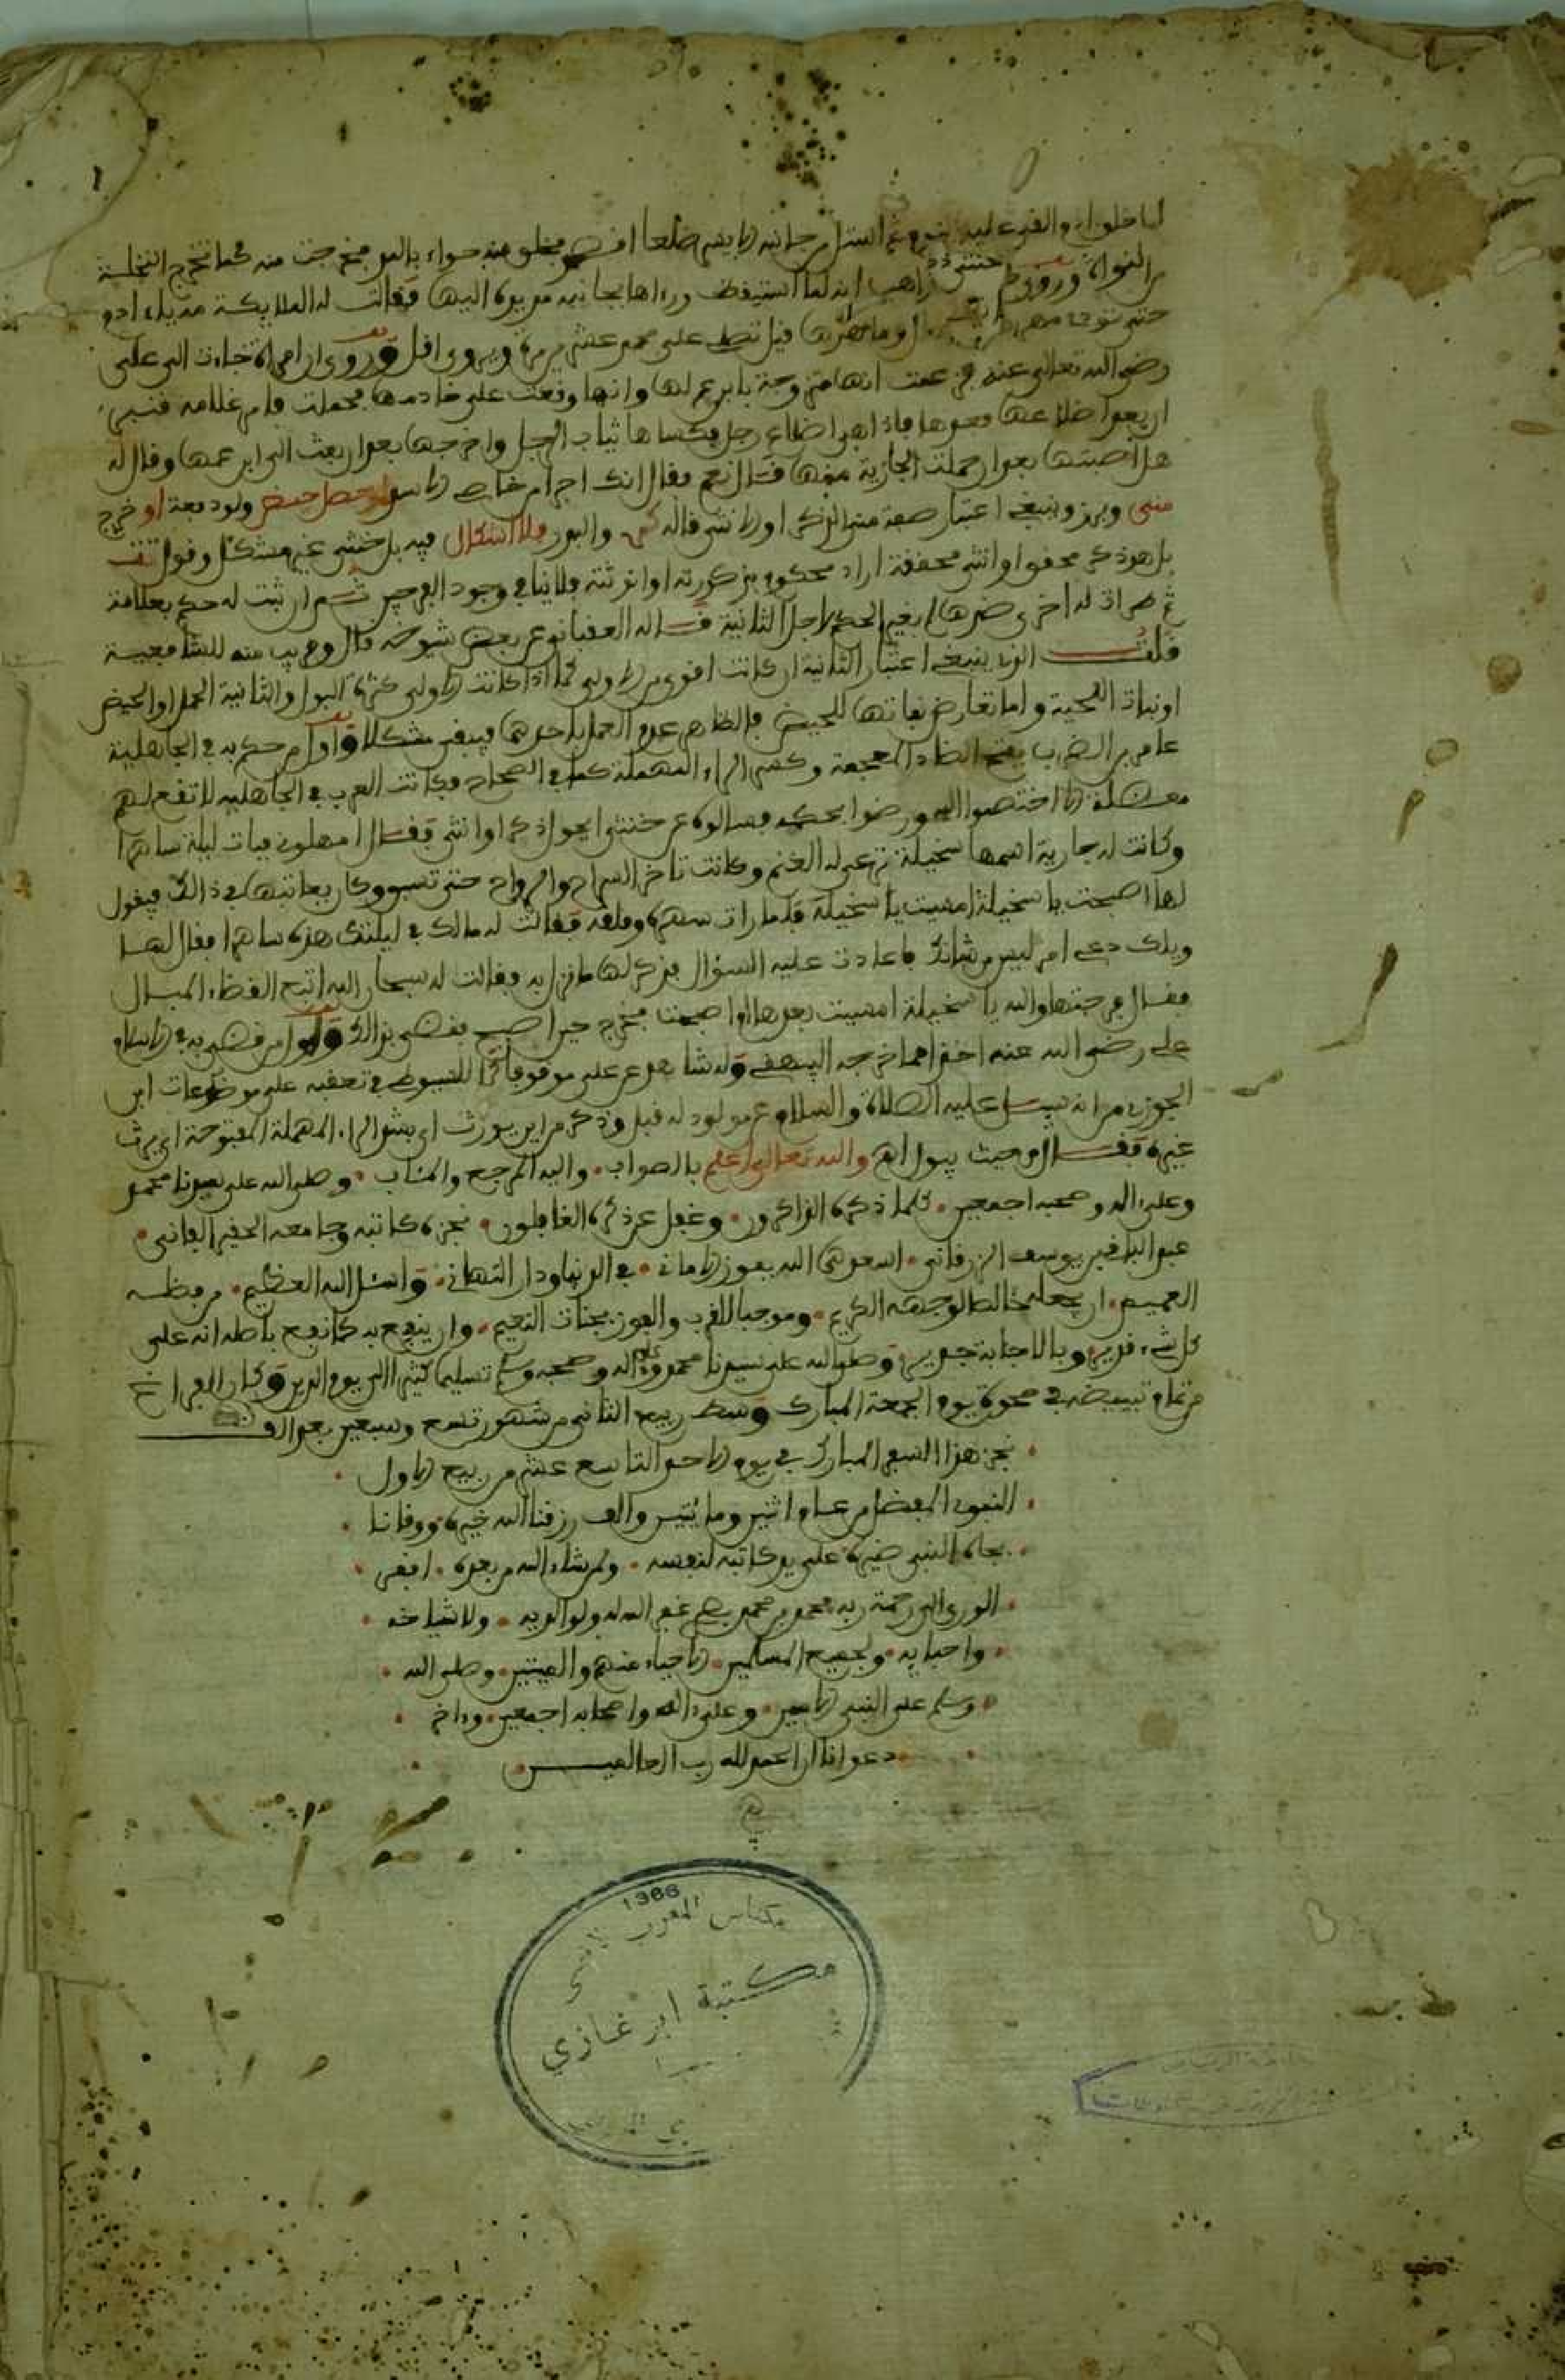 لما خلق ادم والقي عليه النوم ثم استل من جانبه الايسر ضلعا اقصر فخلق منه حواء بالمد فخرجت منه كما تخرج النخلة
من النواة وروي انه لما استيقظ وراها بجانبه مد يده اليها فقالت له الملايكة مه يا ادم
حتى تودي مهرها قال وما مهرها قيل تصلي على محمد عشرين مرة ويروى اقل وروي ان امراة جاءت الى علي
رضي الله تعالى عنه فزعمت انها متزوجة بابن عم لها وانها وقعت على خادمها فحملت فامر غلامه قنبر
ان يعد اضلاعها فعدها فاذا هي اضلاع رجل فكساها ثياب الرجل واخرجها بعد ان بعث الى ابن عمها وقال له
هل اصبتها بعد ان حملت الجارية منها قال نعم فقال انك اجرا من خاصي الاسد او حصل حيض ولو دفعة او خرج
مني وبرز وينبغي اعتبار صفة مني الذكر او الانثى قاله والبدر فلا اشكال فيه بل خنثى غير مشكل وقول تت
بل هو ذكر محقق او انثى محققة اراد محكوم بذكورته او انوثته فلا ينافي وجود الفرجين ثم ان ثبت له حكم بعلامة
ثم طرات له اخرى ضدها لم يغير الحكم لاجل الثانية قاله العقباني عن بعض شيوخه قال وقريب منه للشافعية
قلت الذي ينبغي اعتبار الثانية ان كانت اقوى من الاولى كما اذا كانت الاولى كثرة البول والثانية الحمل او الحيض
او نبات اللحية واما تعارض نباتها للحيض فالظاهر عدم العمل باحدهما فيبقى مشكلا واول من حكم به في الجاهلية
عامر بن الضرب بفتح الضاد المعجمة وكسر الراء المهملة كما في الصحاح فكانت العرب في الجاهلية لا تقع لهم
معضلة الا اختصموا اليه ورضوا بحكمه فسالوه عن خنثى ايجعل ذكرا او انثى فقال امهلوني فبات ليلة ساهرا
وكانت له جارية اسمها سخيلة ترعى له الغنم وكانت تاخر السراح والرواح حتى تسبق وكان يعاتبها في ذالك فيقول
لها اصبحت يا سخيلة امسيت يا سخيلة فلما رات سهره وقلقه فقالت له مالك في ليلتك هذه ساهرا فقال لها
ويلك دعي امر ليس من شانك فاعادت عليه السؤال فذكر لها ما نزل به فقالت له سبحان الله اتبع القضاء المبال
فقال فرجتها والله يا سخيلة امسيت بعدها او اصبحت فخرج حين اصبح فقضى بذالك واول من قضى به في الاسلام
علي رضي الله عنه اخرجه البيهقي وله شاهد عن علي موقوفا للسيوطي في تعقبه على موضوعات ابن
الجوزي من انه سئل عليه الصلاة والسلام عن مولود له قبل وذكر من اين يورث اي بشد الراء المهملة المفتوحة اي يرث
غيره فقال من حيث يبول اه والله تعالى اعلم بالصواب واليه المرجع والمئاب وصلى الله على سيدنا محمد
وعلى اله وصحبه اجمعين كلما ذكره الذاكرون وغفل عن ذكره الغافلون نجزه كاتبه وجامعه الحقير الفاني
عبد الباقي بن يوسف الزرقاني اسعده الله بفوز الاماني في الدنيا ودار التهاني واسئل الله العظيم من فضله
العميم ان يجعله خالصا لوجهه الكريم وموجبا للقرب والفوز بجنات النعيم وان ينفع به كما نفع باصله انه على
كل شيء قدير وبالاجابة جدير وصلى الله على سيدنا محمد وعلى اله وصحبه وسلم تسليما كثيرا الى يوم الدين وكان الفراغ
من تمام تبييضه في ضحوة يوم الجمعة المبارك وسط ربيع الثاني من شهور تسع وسبعين بعد الالف
نجز هذا السفر المبارك في يوم الاحد التاسع عشر من ربيع الاول
النبوي المفضل من عام اثنين ومائتين والف رزقنا الله خيره ووقانا
بجاه النبي ضيره على يد كاتبه لنفسه ولمن شاء الله من بعده افقر
الورى الى رحمة ربه محمد بن محمد غفر الله له ولوالديه ولاشياخه
واحبابه ولجميع المسلمين الاحياء منهم والميتين وصلى الله
وسلم على النبي الامين وعلى اله واصحابه اجمعين وءاخر
دعوانا ان الحمد لله رب العالمين
1366
مكناس المغرب الاقصى
مكتبة ابن غازي